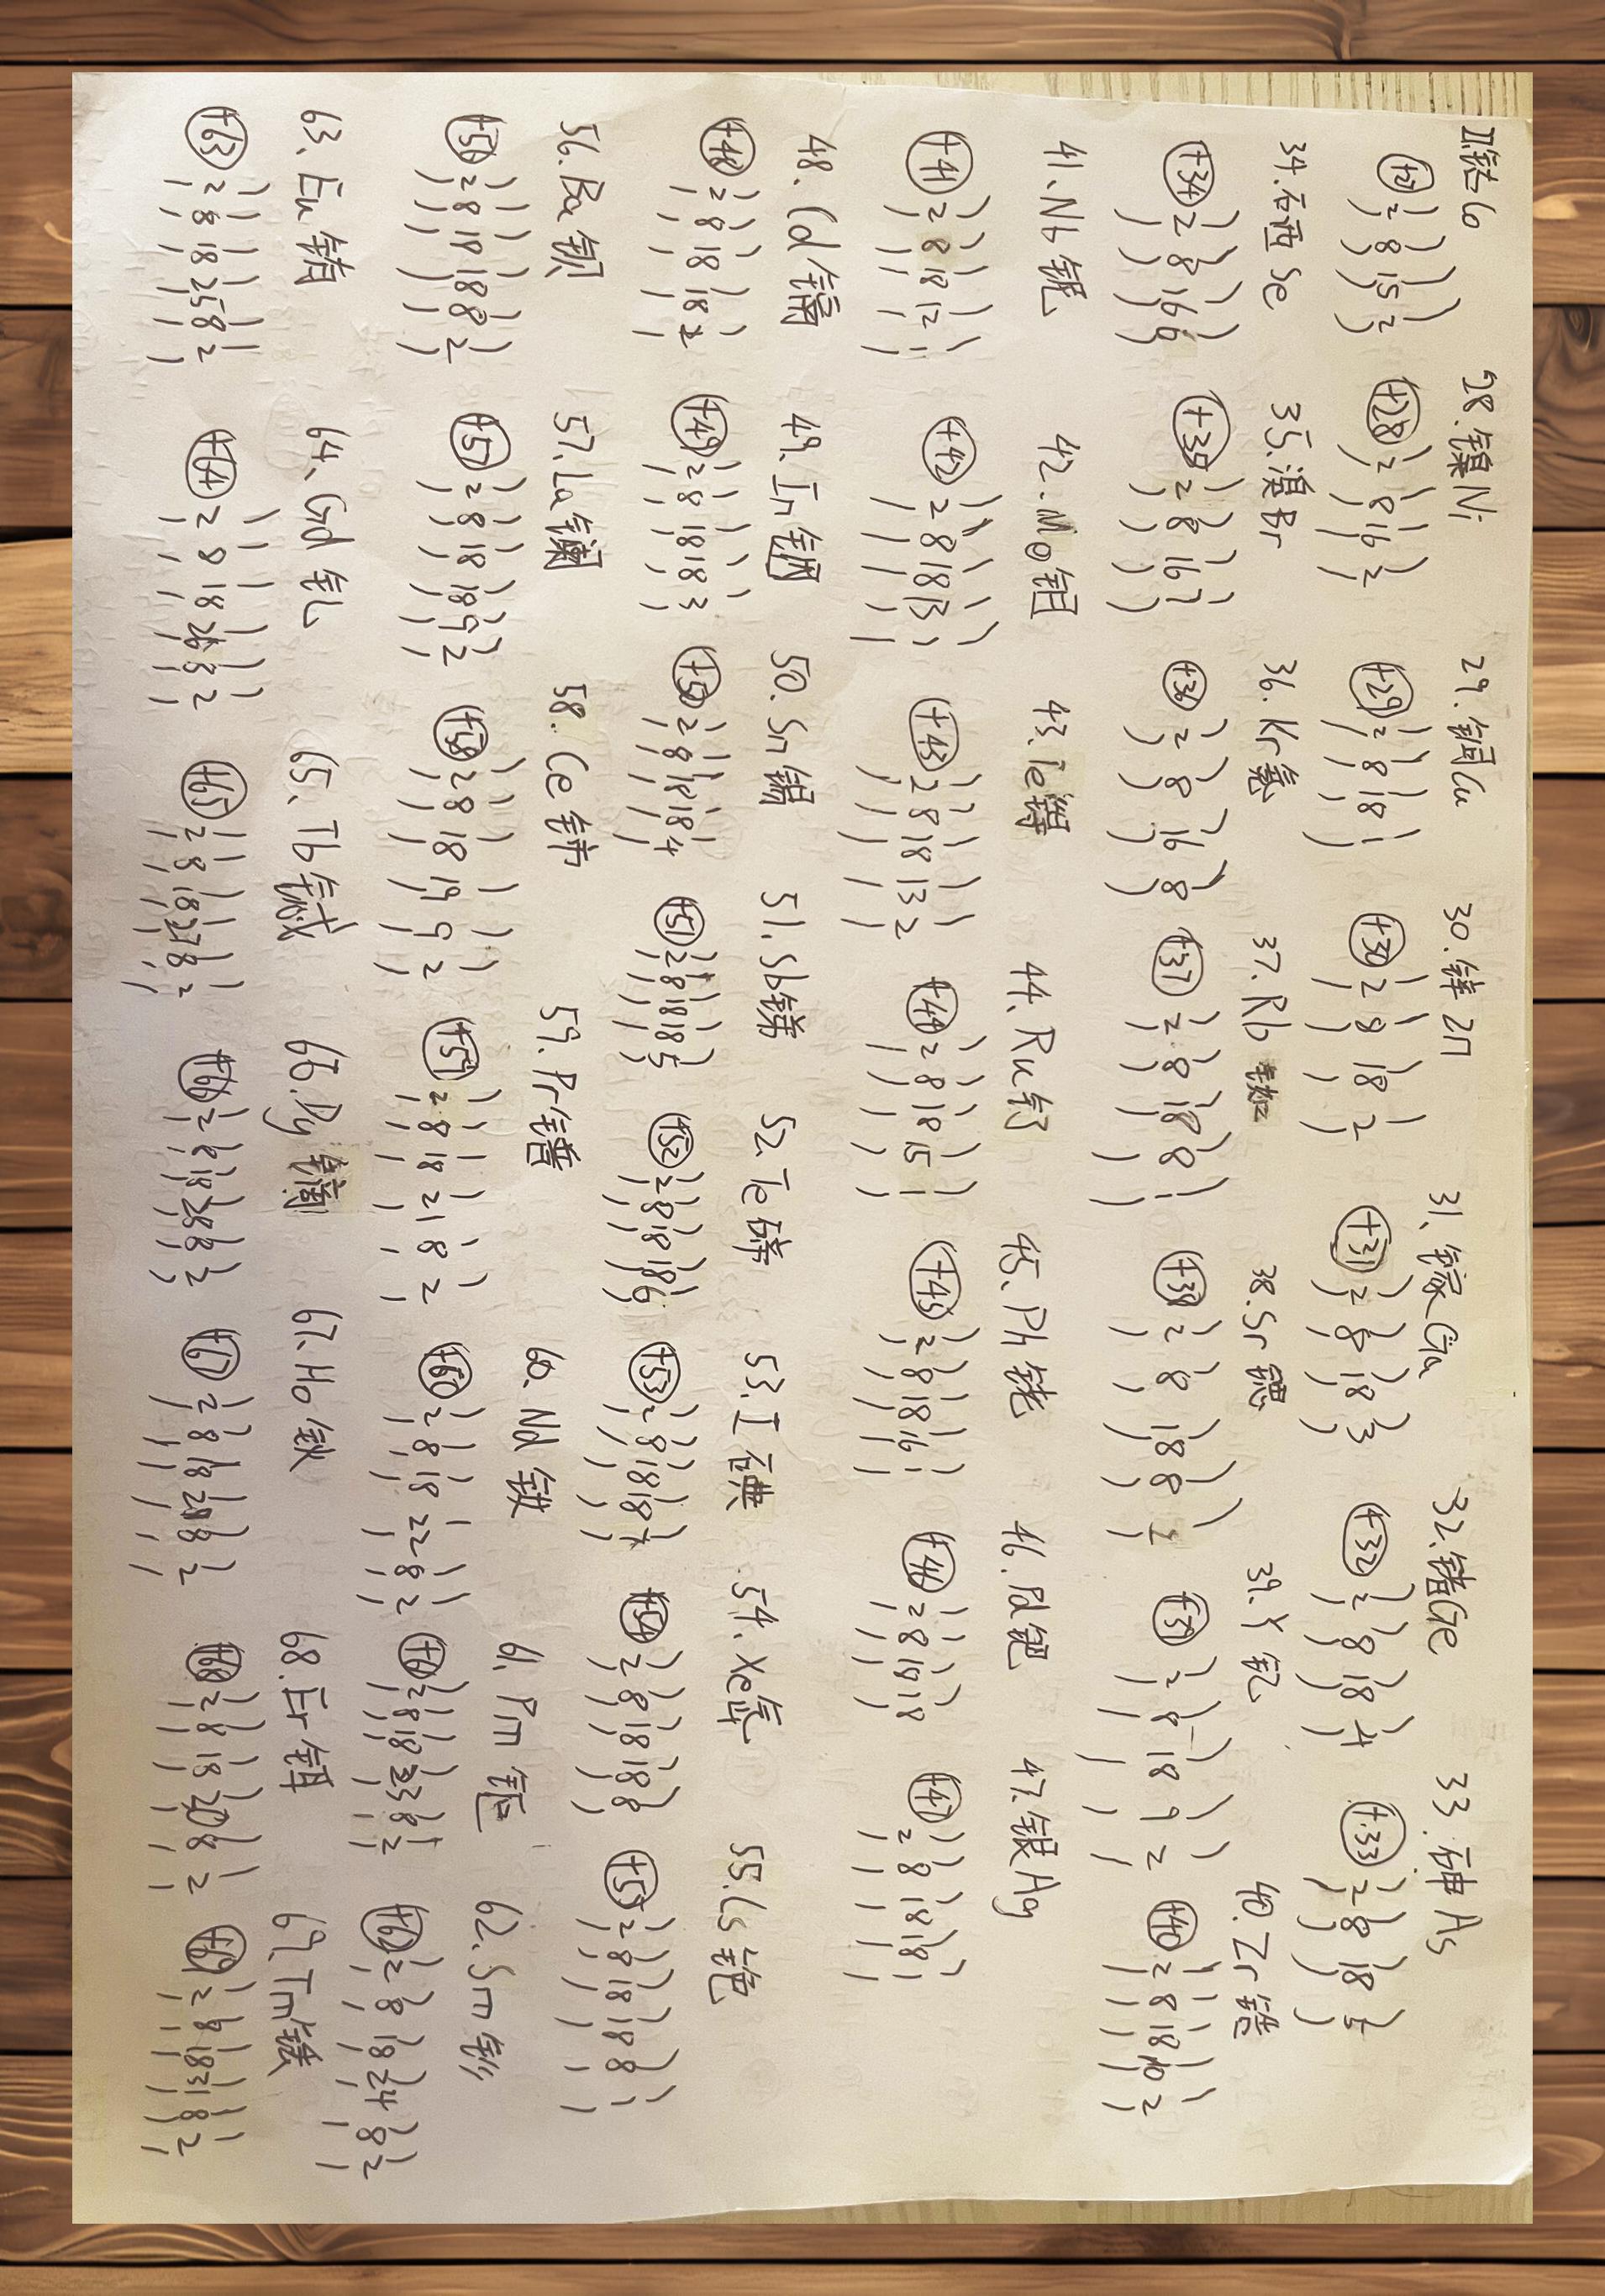 27.钴Co 28.镍Ni 29.铜Cu 30.锌Zn 31、镓Ga 32.锗Ge 33.砷As
+27 2 8 15 2 +28 2 8 16 2 +29 2 8 18 1 +30 2 8 18 2 +31 2 8 18 3 +32 2 8 18 4 +33 2 8 18 5
34.硒Se 35.溴Br 36.Kr氪 37.Rb铷 38.Sr锶 39.Y钇 40.Zr锆
+34 2 8 16 6 +35 2 8 16 7 +36 2 8 16 8 +37 2 8 18 8 1 +38 2 8 18 8 2 +39 2 8 18 9 2 +40 2 8 18 10 2
41.Nb铌 42.Mo钼 43.Te锝 44.Ru钌 45.Ph铑 46.Pd钯 47.银Ag
+41 2 8 18 12 1 +42 2 8 18 13 1 +43 2 8 18 13 2 +44 2 8 18 15 1 +45 2 8 18 16 1 +46 2 8 18 18 +47 2 8 18 18 1
48.Cd镉 49.In铟 50.Sn锡 51.Sb锑 52.Te碲 53.I碘 54.Xe氙 55.Cs铯
+48 2 8 18 18 2 +49 2 8 18 18 3 +50 2 8 18 18 4 +51 2 8 18 18 5 +52 2 8 18 18 6 +53 2 8 18 18 7 +54 2 8 18 18 8 +55 2 8 18 18 8 1
56.Ba钡 57.La镧 58.Ce铈 59.Pr镨 60.Nd钕 61.Pm钷 62.Sm钐
+56 2 8 18 18 8 2 +57 2 8 18 18 9 2 +58 2 8 18 19 9 2 +59 2 8 18 21 8 2 +60 2 8 18 22 8 2 +61 2 8 18 23 8 2 +62 2 8 18 24 8 2
63.Eu铕 64、Gd钆 65、Tb铽 66.Dy镝 67.Ho钬 68.Er铒 69.Tm铥
+63 2 8 18 25 8 2 +64 2 8 18 26 8 2 +65 2 8 18 27 8 2 +66 2 8 18 28 8 2 +67 2 8 18 29 8 2 +68 2 8 18 30 8 2 +69 2 8 18 31 8 2